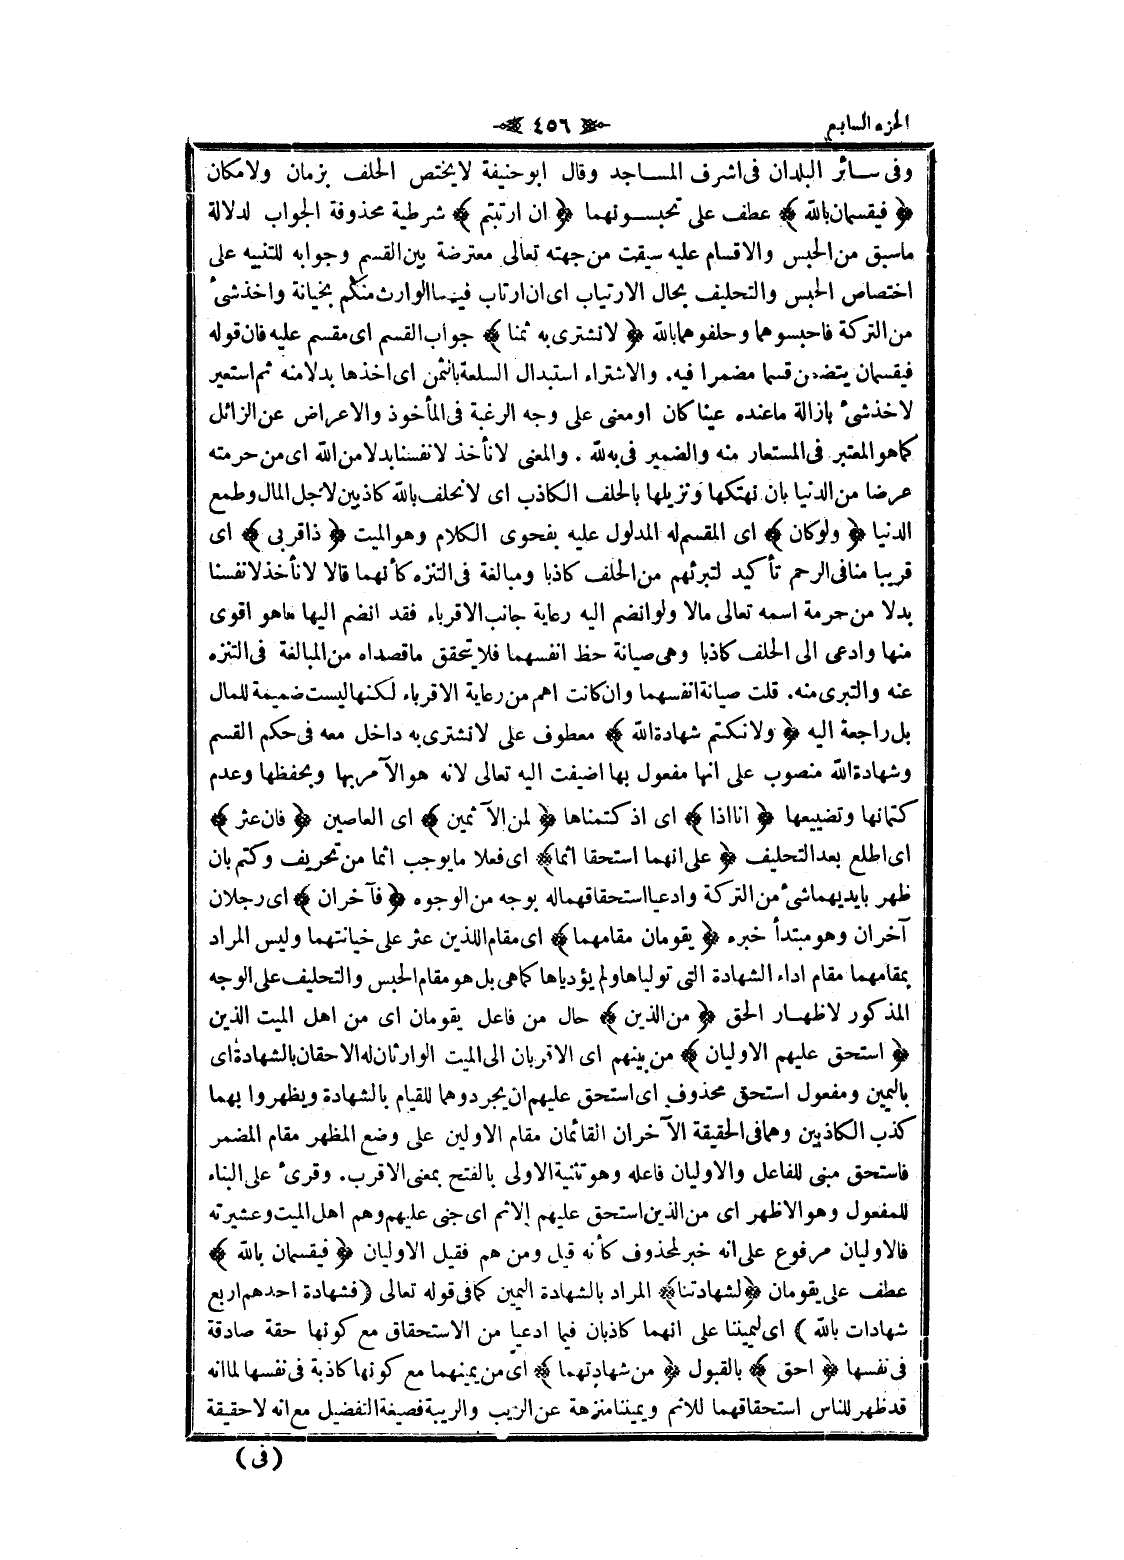 الجزء السابع
٤٥٦
وفى سائر البلدان فى اشرف المساجد وقال ابو حنيفة لا يختص الحلف بزمان ولا مكان
﴿ فيقسمان بالله ﴾ عطف على تحبسونهما ﴿ ان ارتبتم ﴾ شرطية محذوفة الجواب لدلالة
ماسبق من الحبس والاقسام عليه سيقت من جهته تعالى معترضة بين القسم وجوابه للتنبيه على
اختصاص الحبس والتحليف بحال الارتياب اى ان ارتاب فيهما الوارث منكم بخيانة واخذ شىٔ
من التركة فاحبسوهما وحلفوهما بالله ﴿ لا نشترى به ثمنا ﴾ جواب القسم اى مقسم عليه فان قوله
فيقسمان يتضمن قسما مضمرا فيه . والاشتراء استبدال السلعة بالثمن اى اخذها بدلا منه ثم استعير
لاخذ شىٔ بازالة ما عنده عينا كان او معنى على وجه الرغبة فى المأخوذ والاعراض عن الزائل
كما هو المعتبر فى المستعار منه والضمير فى به لله . والمعنى لا نأخذ لانفسنا بدلا من الله اى من حرمته
عرضا من الدنيا بان نهتكها ونزيلها بالحلف الكاذب اى لا نحلف بالله كاذبين لاجل المال وطمع
الدنيا ﴿ ولو كان ﴾ اى المقسم له المدلول عليه بفحوى الكلام وهو الميت ﴿ ذا قربى ﴾ اى
قريبا منا فى الرحم تأكيد لتبرئهم من الحلف كاذبا ومبالغة فى التنزه كأنهما قالا لا نأخذ لانفسنا
بدلا من حرمة اسمه تعالى مالا ولو انضم اليه رعاية جانب الاقرباء فقد انضم اليها ماهو اقوى
منها وادعى الى الحلف كاذبا وهى صيانة حظ انفسهما فلا يتحقق ما قصداه من المبالغة فى التنزه
عنه والتبرى منه. قلت صيانة انفسهما وان كانت اهم من رعاية الاقرباء لكنها ليست ضميمة للمال
بل راجعة اليه ﴿ ولا نكتم شهادة الله ﴾ معطوف على لا نشترى به داخل معه فى حكم القسم
وشهادة الله منصوب على انها مفعول بها اضيفت اليه تعالى لانه هو الآمر بها وبحفظها وعدم
كتمانها وتضييعها ﴿ انا اذا ﴾ اى اذ كتمناها ﴿ لمن الآثمين ﴾ اى العاصين ﴿ فان عثر ﴾
اى اطلع بعد التحليف ﴿ على انهما استحقا اثما ﴾ اى فعلا ما يوجب اثما من تحريف وكتم بان
ظهر بايديهما شىٔ من التركة وادعيا استحقاقهما له بوجه من الوجوه ﴿ فآخران ﴾ اى رجلان
آخران وهو مبتدأ خبره ﴿ يقومان مقامهما ﴾ اى مقام اللذين عثر على خيانتهما وليس المراد
بمقامهما مقام اداء الشهادة التى تولياها ولم يؤدياها كما هى بل هو مقام الحبس والتحليف على الوجه
المذكور لاظهار الحق ﴿ من الذين ﴾ حال من فاعل يقومان اى من اهل الميت الذين
﴿ استحق عليهم الاوليان ﴾ من بينهم اى الاقربان الى الميت الوارثان له الاحقان بالشهادة اى
باليمين ومفعول استحق محذوف اى استحق عليهم ان يجردوهما للقيام بالشهادة ويظهروا بهما
كذب الكاذبين وهما فى الحقيقة الآخران القائمان مقام الاولين على وضع المظهر مقام المضمر
فاستحق مبنى للفاعل والاوليان فاعله وهو تثنية الاولى بالفتح بمعنى الاقرب . وقرئ على البناء
للمفعول وهو الاظهر اى من الذين استحق عليهم الاثم اى جنى عليهم وهم اهل الميت وعشيرته
فالاوليان مرفوع على انه خبر لمحذوف كأنه قيل ومن هم فقيل الاوليان ﴿ فيقسمان بالله ﴾
عطف على يقومان ﴿ لشهادتنا ﴾ المراد بالشهادة اليمين كما فى قوله تعالى ( فشهادة احدهم اربع
شهادات بالله ) اى ليميننا على انهما كاذبان فيما ادعيا من الاستحقاق مع كونها حقة صادقة
فى نفسها ﴿ احق ﴾ بالقبول ﴿ من شهادتهما ﴾ اى من يمينهما مع كونها كاذبة فى نفسها لما انه
قد ظهر للناس استحقاقهما للاثم ويميننا منزهة عن الريب والريبة فصيغة التفضيل مع انه لا حقيقة
( فى )